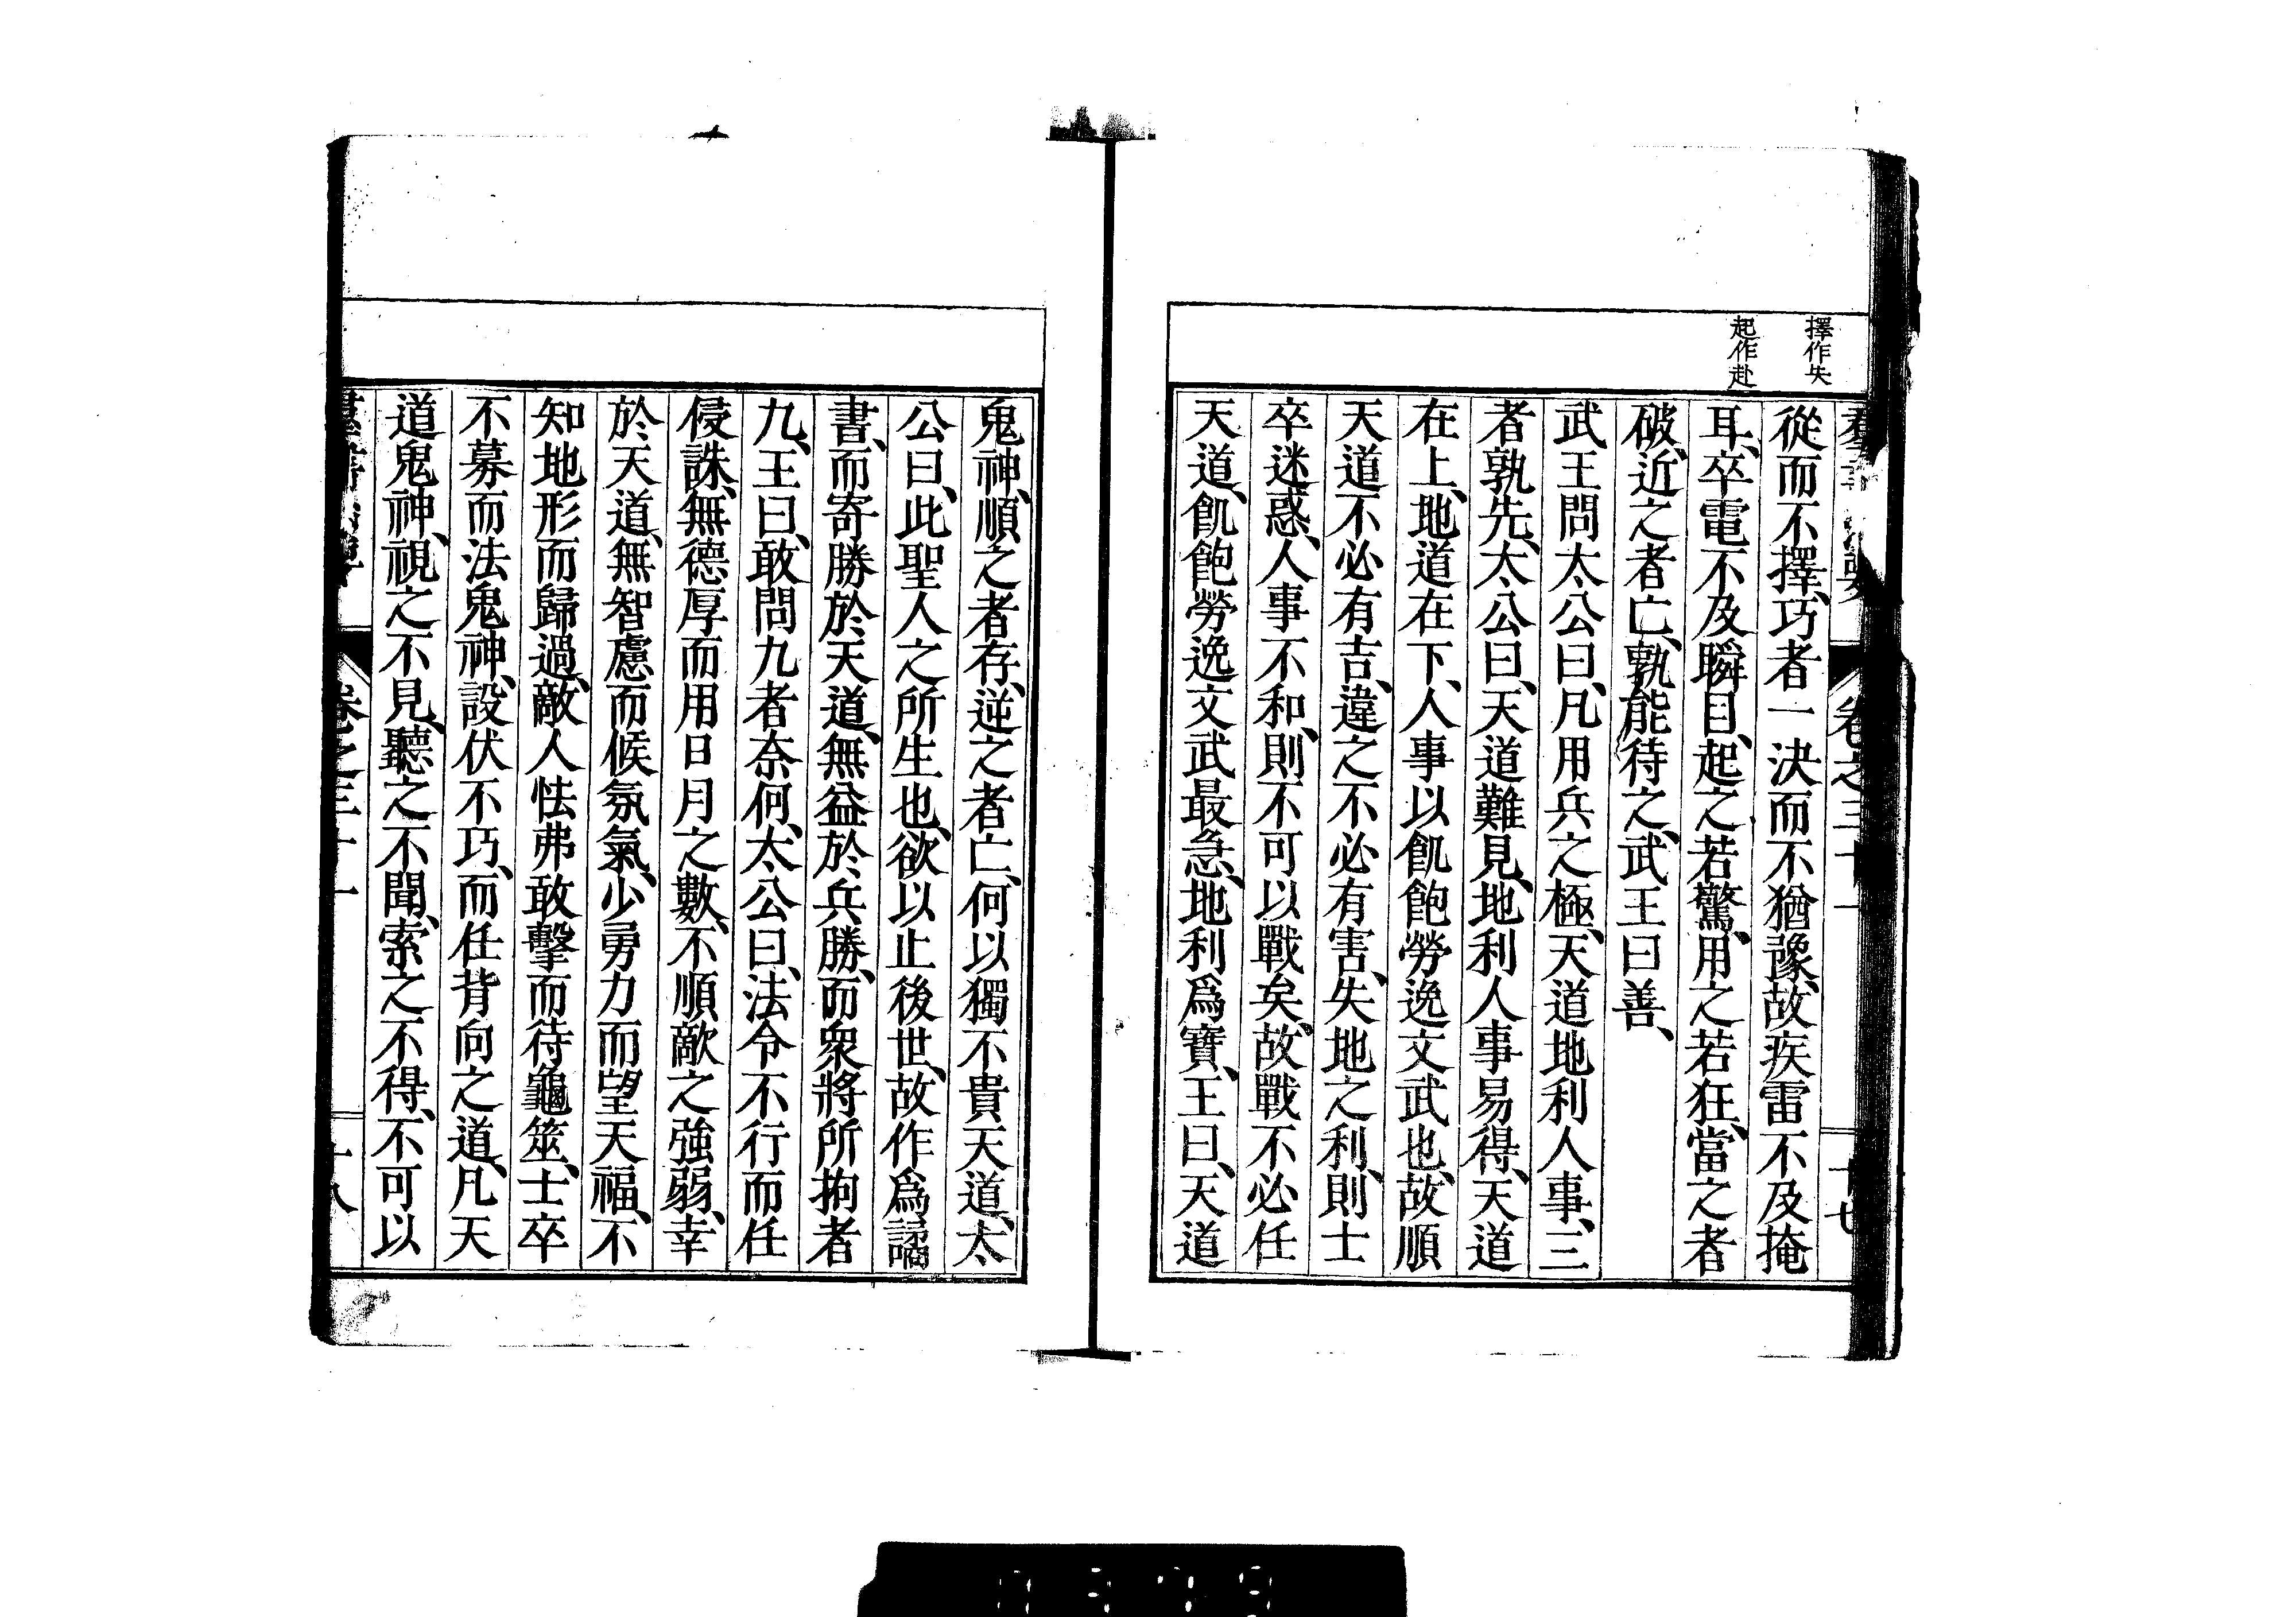 擇作失
起作赴
從而不擇、巧者一決而不猶豫、故疾雷不及掩
耳、卒電不及瞬目、起之若驚、用之若狂、當之者
破、近之者亡、孰能待之、武王曰善、
武王問太公曰、凡用兵之極、天道地利人事、三
者孰先、太公曰、天道難見、地利人事易得、天道
在上、地道在下、人事以飢飽勞逸文武也、故順
天道不必有吉、違之不必有害、失地之利、則士
卒迷惑、人事不和、則不可以戰矣、故戰不必任
天道、飢飽勞逸文武最急、地利爲寶、王曰、天道
鬼神、順之者存、逆之者亡、何以獨不貴天道、太
公曰、此聖人之所生也、欲以止後世、故作爲譎
書、而寄勝於天道、無益於兵勝、而衆將所拘者
九、王曰、敢問九者奈何、太公曰、法令不行而任
侵誅、無德厚而用日月之數、不順敵之強弱、幸
於天道、無智慮而候氛氣、少勇力而望天福、不
知地形而歸過、敵人怯弗敢擊而待龜筮、士卒
不募而法鬼神、設伏不巧、而任背向之道、凡天
道鬼神、視之不見、聽之不聞、索之不得、不可以
卷之三十一